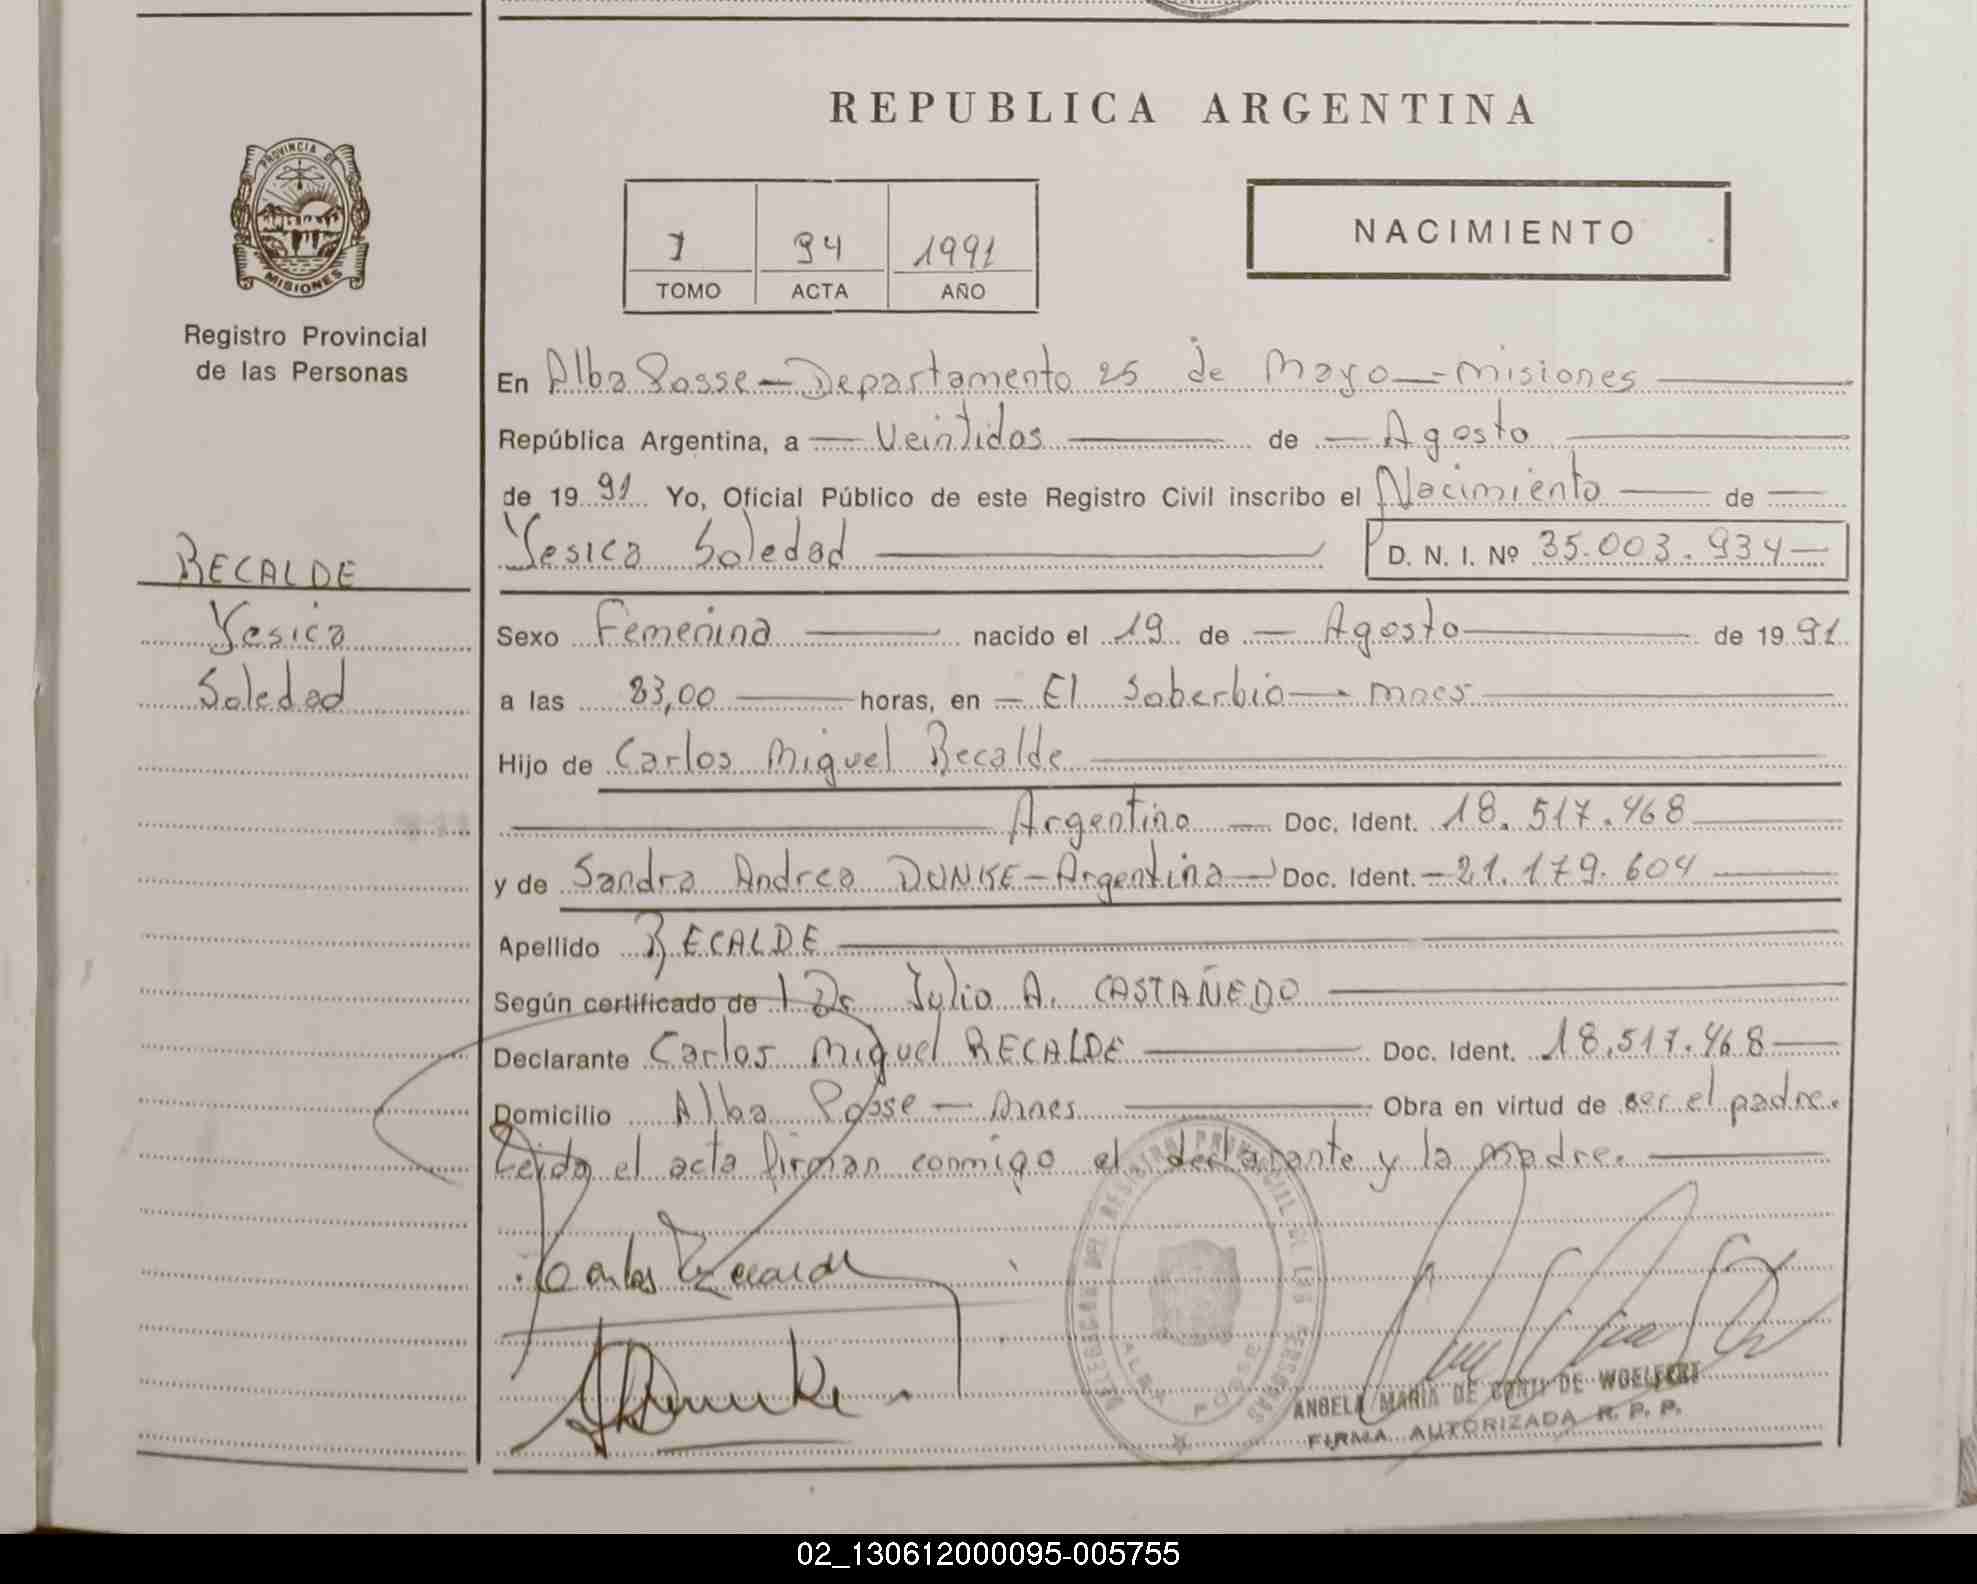 REPUBLICA ARGENTINA
PROVINCIA DE
MISIONES
Registro Provincial
de las Personas
1 94 1991
TOMO ACTA AÑO
NACIMIENTO
En Alba Posse — Departamento 25 de Mayo — Misiones
República Argentina, a — Veintidos — de — Agosto
de 1991 Yo, Oficial Público de este Registro Civil inscribo el Nacimiento — de —
Yesica Soledad — D. N. I. Nº 35.003.934 —
RECALDE
Yesica
Soledad
Sexo Femenina — nacido el 19 de — Agosto — de 1991
a las 23,00 — horas, en — El Soberbio — mnes
Hijo de Carlos Miguel Recalde
Argentino — Doc. Ident. 18.517.468
y de Sandra Andrea DUNKE — Argentina — Doc. Ident. — 21.179.604
Apellido RECALDE
Según certificado de Dr Julio A. CASTAÑEDO
Declarante Carlos Miguel RECALDE — Doc. Ident. 18.517.468 —
Domicilio Alba Posse — mnes — Obra en virtud de ser el padre.
Leida el acta firman conmigo el declarante y la madre.
Carlos Recalde
DELEGACION DEL REGISTRO PROVINCIAL DE LAS PERSONAS
ALBA POSSE
ANGELA MARIA DE CONTI DE WOELFERT
FIRMA AUTORIZADA R. P. P.
02_130612000095-005755